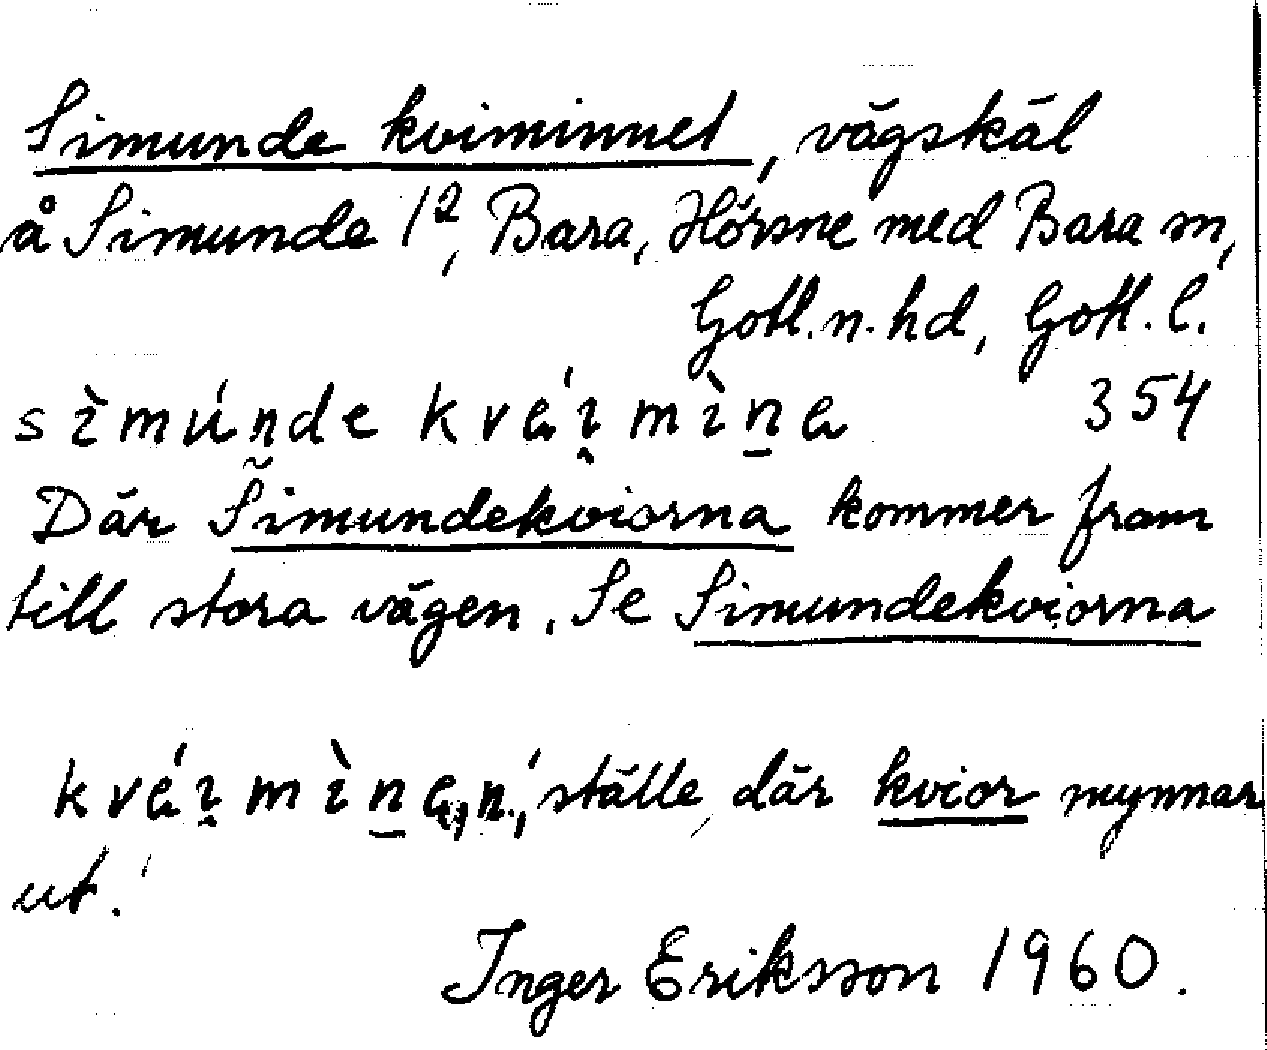 Simunde kviminnet, vägskäl
å Simunde 1², Bara, Hörsne med Bara sn,
Gotl. n. hd, Gotl. l.
sìmúnde kváɪmìna 354
Där Simundekviorna kommer fram
till stora vägen. Se Simundekviorna
kváɪmìna, n., 'ställe, där kvior mynnar
ut.'
Inger Eriksson 1960.